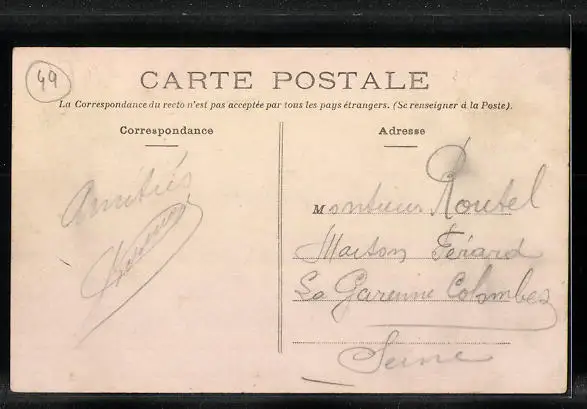 49
CARTE POSTALE
La Correspondance du recto n'est pas acceptée par tous les pays étrangers. (Se renseigner à la Poste).
Correspondance
Adresse
Amitiés
Monsieur Routel
Maison Férard
La Garenne Colombes
Seine